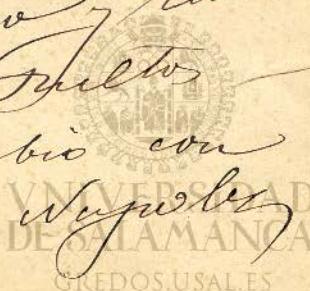 y
Sueltos
bio con
Napoles
VNIVERSIDAD
DE SALAMANCA
GREDOS.USAL.ES